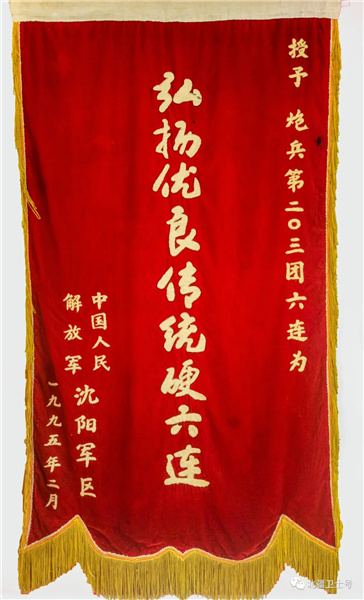 授予 炮兵第二〇三团六连为
弘扬优良传统硬六连
中国人民
解放军 沈阳军区
一九九五年二月
北疆卫士号